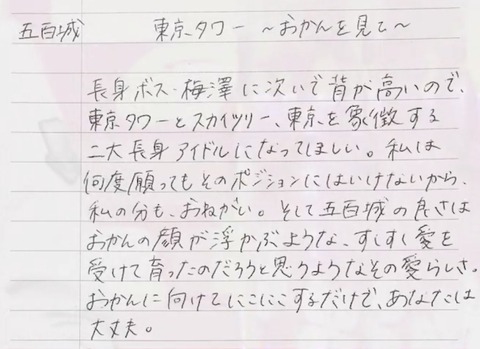 五百城 東京タワー ～おかんを見て～
長身ボス・梅澤に次いで背が高いので、
東京タワーとスカイツリー、東京を象徴する
二大長身アイドルになってほしい。私は
何度願ってもそのポジションにはいけないから、
私の分も、おねがい。そして五百城の良さは
おかんの顔が浮かぶような、すくすく愛を
受けて育ったのだろうと思うようなその愛らしさ。
おかんに向けてにこにこするだけで、あなたは
大丈夫。